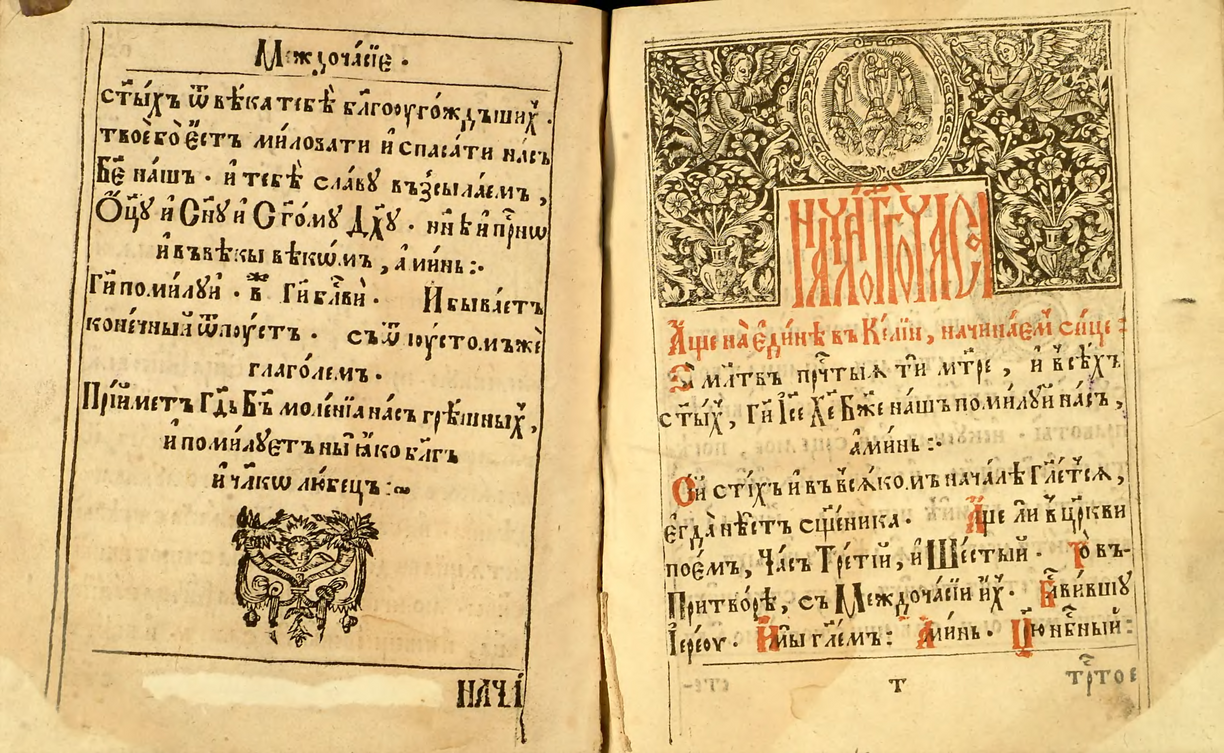 Междочасїе .
ст҃ы́хъ ѿвѣ́ка тебѣ̀ бл҃гооугождъшихъ .
твоѐ бо є҆́стъ ми́ловати и҆ спаса́ти на́съ
Бж҃е на́шъ . и҆ тебѣ̀ сла́ву възсыла́емъ ,
Ѻ҆ц҃у и҆ Сн҃у и҆ Ст҃о́му Дх҃у . нн҃ѣ и҆ при́снѡ
и҆ въ вѣ́кы вѣкѡ́мъ , а҆ми́нь :·
Гд҃и поми́луй . в҃ Гд҃и бл҃ви . И҆ быва́етъ
коне́чный ѿпу́стъ . съ ѿпустомъ же
глаго́лемъ .
Прїи́метъ Гд҃ь Бг҃ъ моле́нїа на́съ грѣ́шныхъ ,
и҆ поми́луетъ ны̀ ꙗ҆́ко бл҃гъ
и҆ чл҃колю́бецъ :~
НАЧА́
А҆́ще на є҆ди́нѣ въ Ке́лїи , начина́ем си́це :
За мл҃твъ прчⷭ҇тыѧ тѝ мт҃ре , и҆ всѣ́хъ
ст҃ы́хъ , Гд҃и І҆с҃е Хе҃ Бж҃е на́шъ поми́луй на́съ ,
а҆ми́нь :·
Сі́й сті́хъ и҆ въ всѧ́комъ нача́лѣ гл҃етсѧ ,
є҆гда̀ нѣ́стъ сщ҃е́ника . А҆́ще ли в цр҃кви
пое́мъ , Ча́съ Тре́тїй , и҆ Ше́стый . То̀ въ-
Притво́рѣ , съ Междоча́сїи и҆́хъ . Бл҃вившу
І҆ере́оу . И҆ мы̀ гл҃емъ : А҆ми́нь . Цр҃ю нбⷭ҇ный :
т
трⷭ҇тое